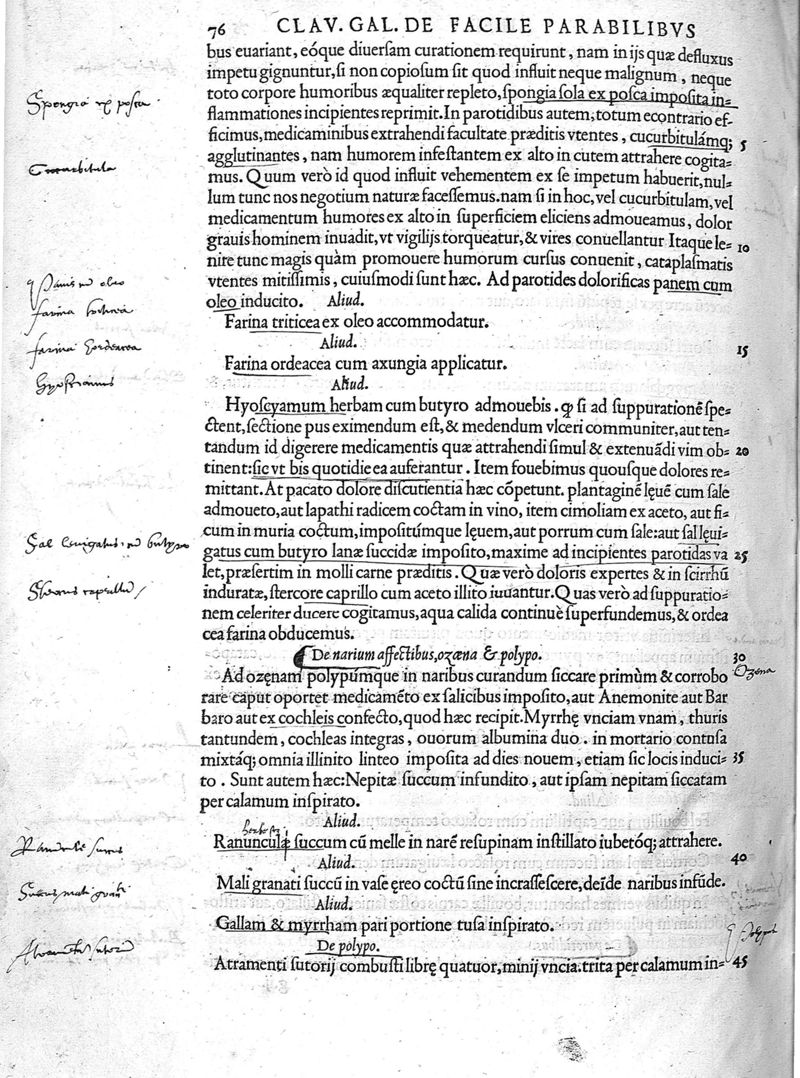 76 CLAV. GAL. DE FACILE PARABILIBVS
bus euariant, eóque diuersam curationem requirunt, nam in ijs quæ defluxus
impetu gignuntur, si non copiosum sit quod influit neque malignum, neque
toto corpore humoribus æqualiter repleto, spongia sola ex posca imposita in=
Spongia ex posca
flammationes incipientes reprimit. In parotidibus autem, totum econtrario ef=
ficimus, medicaminibus extrahendi facultate præditis vtentes, cucurbitulámq; 5
agglutinantes, nam humorem infestantem ex alto in cutem attrahere cogita=
Cucurbitula
mus. Quum verò id quod influit vehementem ex se impetum habuerit, nul=
lum tunc nos negotium naturæ facessemus. nam si in hoc, vel cucurbitulam, vel
medicamentum humores ex alto in superficiem eliciens admoueamus, dolor
grauis hominem inuadit, vt vigilijs torqueatur, & vires conuellantur Itaque le= 10
nire tunc magis quàm promouere humorum cursus conuenit, cataplasmatis
vtentes mitissimis, cuiusmodi sunt hæc. Ad parotides dolorificas panem cum
Panis oleo
oleo inducito. Aliud.
farina
Farina triticea ex oleo accommodatur.
Aliud. 15
farina hordeacea
Farina ordeacea cum axungia applicatur.
Aliud.
Hyosciamus
Hyoscyamum herbam cum butyro admouebis. ꝙ si ad suppurationē spe=
ctent, sectione pus eximendum est, & medendum vlceri communiter, aut ten=
tandum id digerere medicamentis quæ attrahendi simul & extenuādi vim ob= 20
tinent: sic vt bis quotidie ea auferantur. Item fouebimus quousque dolores re=
mittant. At pacato dolore discutientia hæc cōpetunt. plantaginē lęuē cum sale
admoueto, aut lapathi radicem coctam in vino, item cimoliam ex aceto, aut fi=
cum in muria coctum, impositúmque lęuem, aut porrum cum sale: aut sal lęui=
Sal leuigatus butyro
gatus cum butyro lanæ succidæ imposito, maxime ad incipientes parotidas va 25
let, præsertim in molli carne præditis. Quæ verò doloris expertes & in scirrhū
induratæ, stercore caprillo cum aceto illito iuuantur. Quas verò ad suppuratio=
Stercus caprillū
nem celeriter ducere cogitamus, aqua calida continuè superfundemus, & ordea
cea farina obducemus.
De narium affectibus, ozæna & polypo. 30
Ad ozęnam polypúmque in naribus curandum siccare primùm & corrobo
Ozena
rare caput oportet medicamēto ex salicibus imposito, aut Anemonite aut Bar
baro aut ex cochleis confecto, quod hæc recipit. Myrrhę vnciam vnam, thuris
tantundem, cochleas integras, ouorum albumina duo. in mortario contusa
mixtáq; omnia illinito linteo imposita ad dies nouem, etiam sic locis induci= 35
to. Sunt autem hæc: Nepitæ succum infundito, aut ipsam nepitam siccatam
per calamum inspirato.
Aliud.
Ranunculæ succum cū melle in narē resupinam instillato iubetóq; attrahere.
Aliud. 40
Mali granati succū in vase ęreo coctū sine incrassescere, deīde naribus infūde.
Succus mali granati
Aliud.
Gallam & myrrham pari portione tusa inspirato.
De polypo.
Polypus
Atramenti sutorij combusti librę quatuor, minij vncia. trita per calamum in= 45